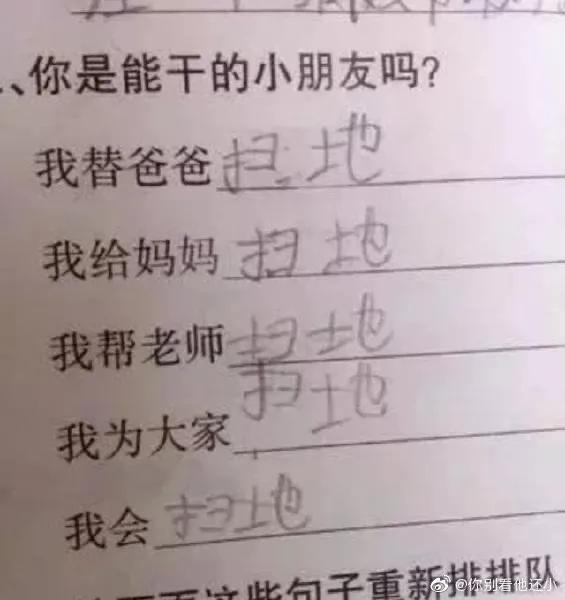 、你是能干的小朋友吗?
我替爸爸扫地
我给妈妈扫地
我帮老师扫地
我为大家扫地
我会扫地
这些句子重新排排队
@你别看他还小